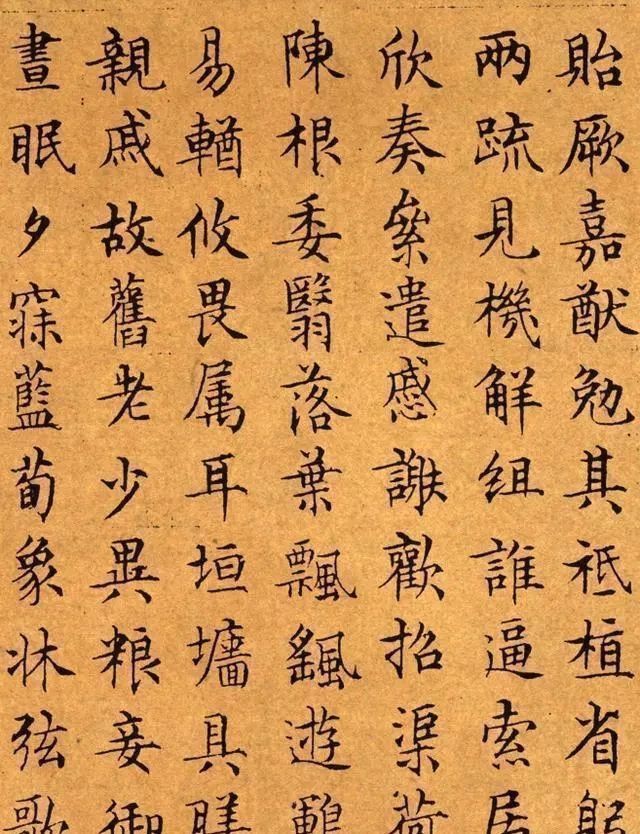 貽厥嘉猷勉其祗植省躬
兩疏見機解組誰逼索居
欣奏累遣慼謝歡招渠荷
陳根委翳落葉飄颻遊鵾
易輶攸畏属耳垣墻具膳
親戚故舊老少異粮妾御
晝眠夕寐藍荀象牀弦歌